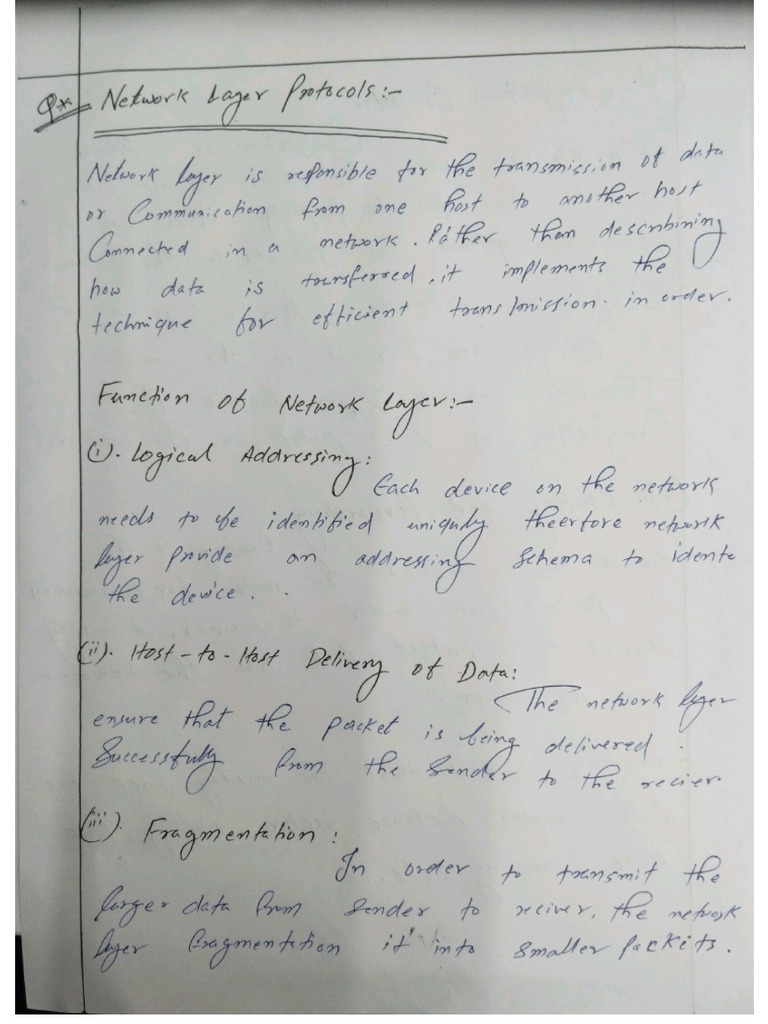 Q* Network Layer Protocols:-
Network layer is responsible for the transmission of data
or Communication from one host to another host
Connected in a network. Rather than describining
how data is transferred, it implements the
technique for efficient transmission. in order.
Function of Network Layer:-
(i). Logical Addressing:
Each device on the network
needs to be identified uniqudy theerfore network
layer provide an addressing schema to idente
the device.
(ii). Host-to-Host Delivery of Data:
The network layer
ensure that the packet is being delivered.
Successfully from the Sender to the recier.
(iii). Fragmentation:
In order to transmit the
larger data from Sender to reciver, the network
layer fragmentation it into smaller packits.